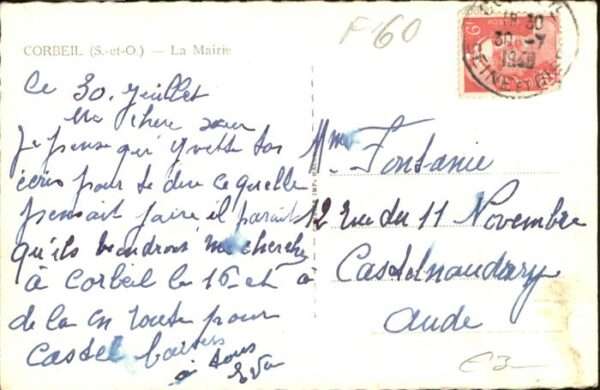 CORBEIL (S.-et-O.) — La Mairie
F60
30 -7
SEINE ET OISE
Ce 30. Juillet
Ma chere sœur
Je pense qu'Yvette tas
écris pour te dire ce quelle
pensait faire il parait
qu'ils viendrons me cherche
à Corbeil le 16 et
de la en route pour
Castel baisers
à tous
Eva
Mme Fontanie
12 rue du 11 Novembre
Castelnaudary
Aude